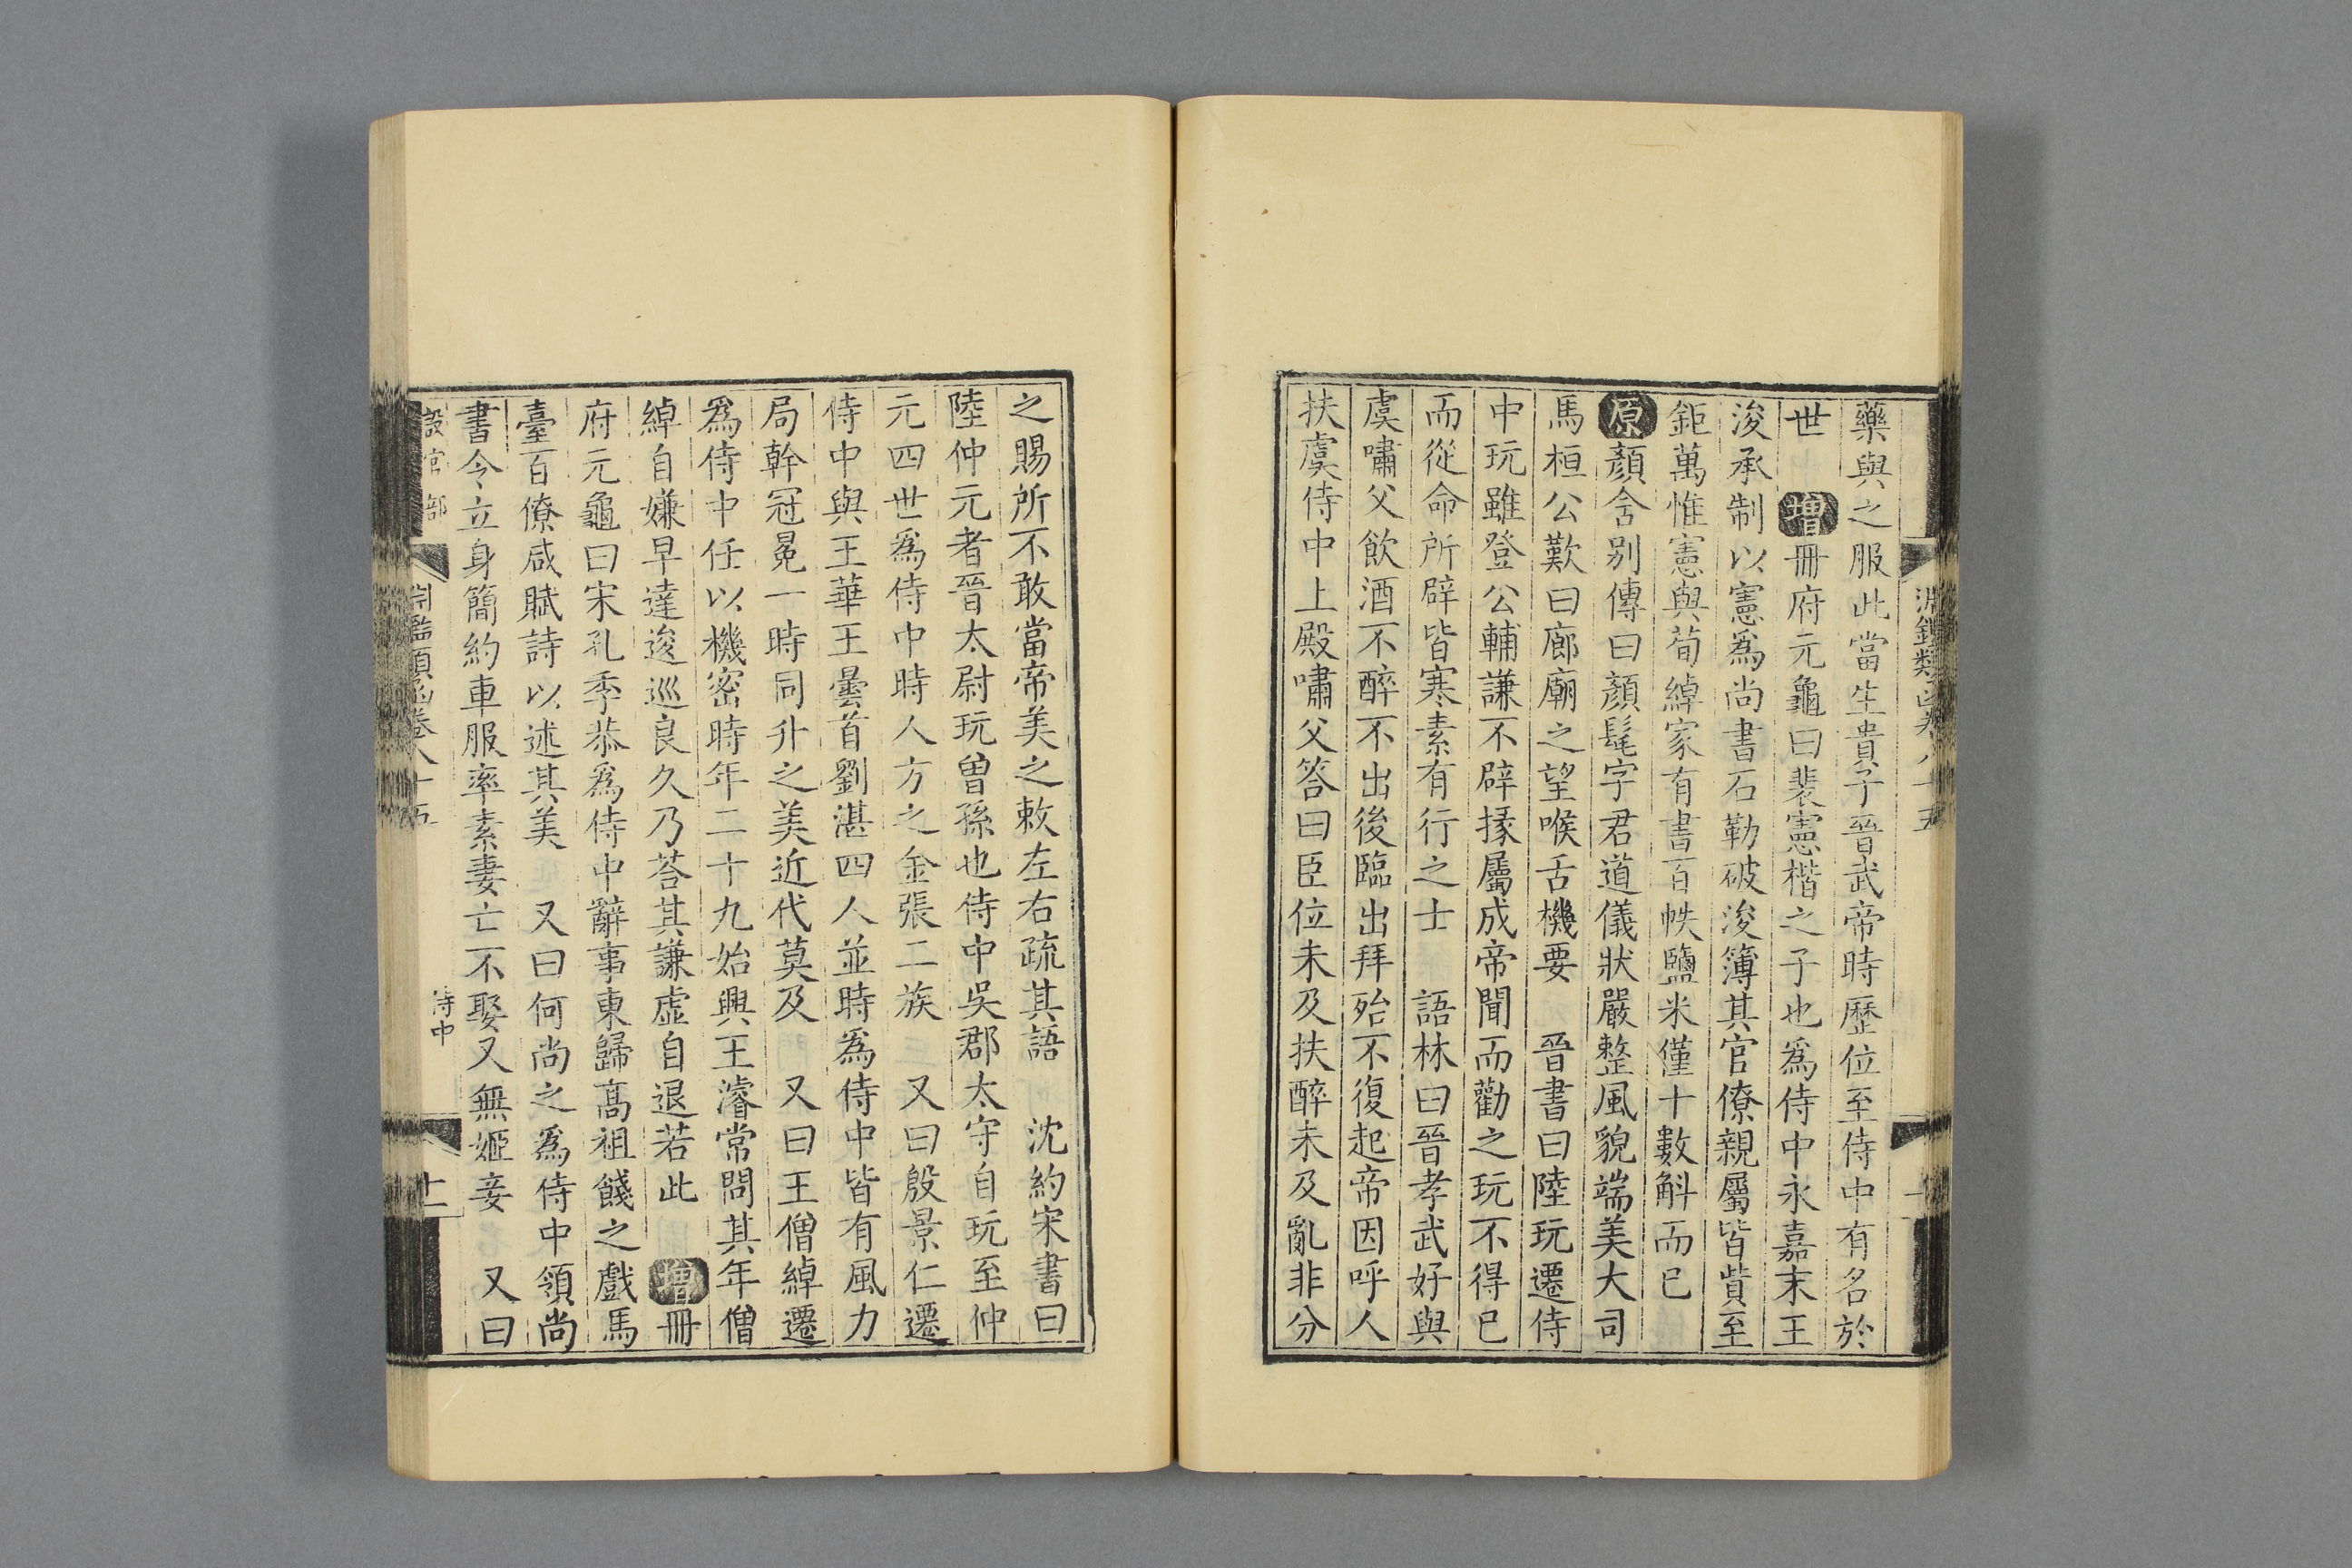 藥與之服此當生貴子晉武帝時歷位至侍中有名於
世 增冊府元龜曰裴憲楷之子也爲侍中永嘉末王
浚承制以憲爲尚書石勒破浚簿其官僚親屬皆貲至
鉅萬惟憲與荀綽家有書百帙鹽米僅十數斛而已
原顏含別傳曰顏髦字君道儀狀嚴整風貌端美大司
馬桓公歎曰廊廟之望喉舌機要 晉書曰陸玩遷侍
中玩雖登公輔謙不辟掾屬成帝聞而勸之玩不得已
而從命所辟皆寒素有行之士 語林曰晉孝武好與
虞嘯父飲酒不醉不出後臨出拜殆不復起帝因呼人
扶虞侍中上殿嘯父答曰臣位未及扶醉未及亂非分
之賜所不敢當帝美之敕左右疏其語 沈約宋書曰
陸仲元者晉太尉玩曾孫也侍中吳郡太守自玩至仲
元四世爲侍中時人方之金張二族 又曰殷景仁遷
侍中與王華王曇首劉湛四人並時爲侍中皆有風力
局幹冠冕一時同升之美近代莫及 又曰王僧綽遷
爲侍中任以機密時年二十九始興王濬常問其年僧
綽自嫌早達逡巡良久乃荅其謙虛自退若此 增冊
府元龜曰宋孔季恭爲侍中辭事東歸高祖餞之戲馬
臺百僚咸賦詩以述其美 又曰何尚之爲侍中領尚
書令立身簡約車服率素妻亡不娶又無姬妾 又曰
設官部 淵鑑類函卷八十五 侍中 十一